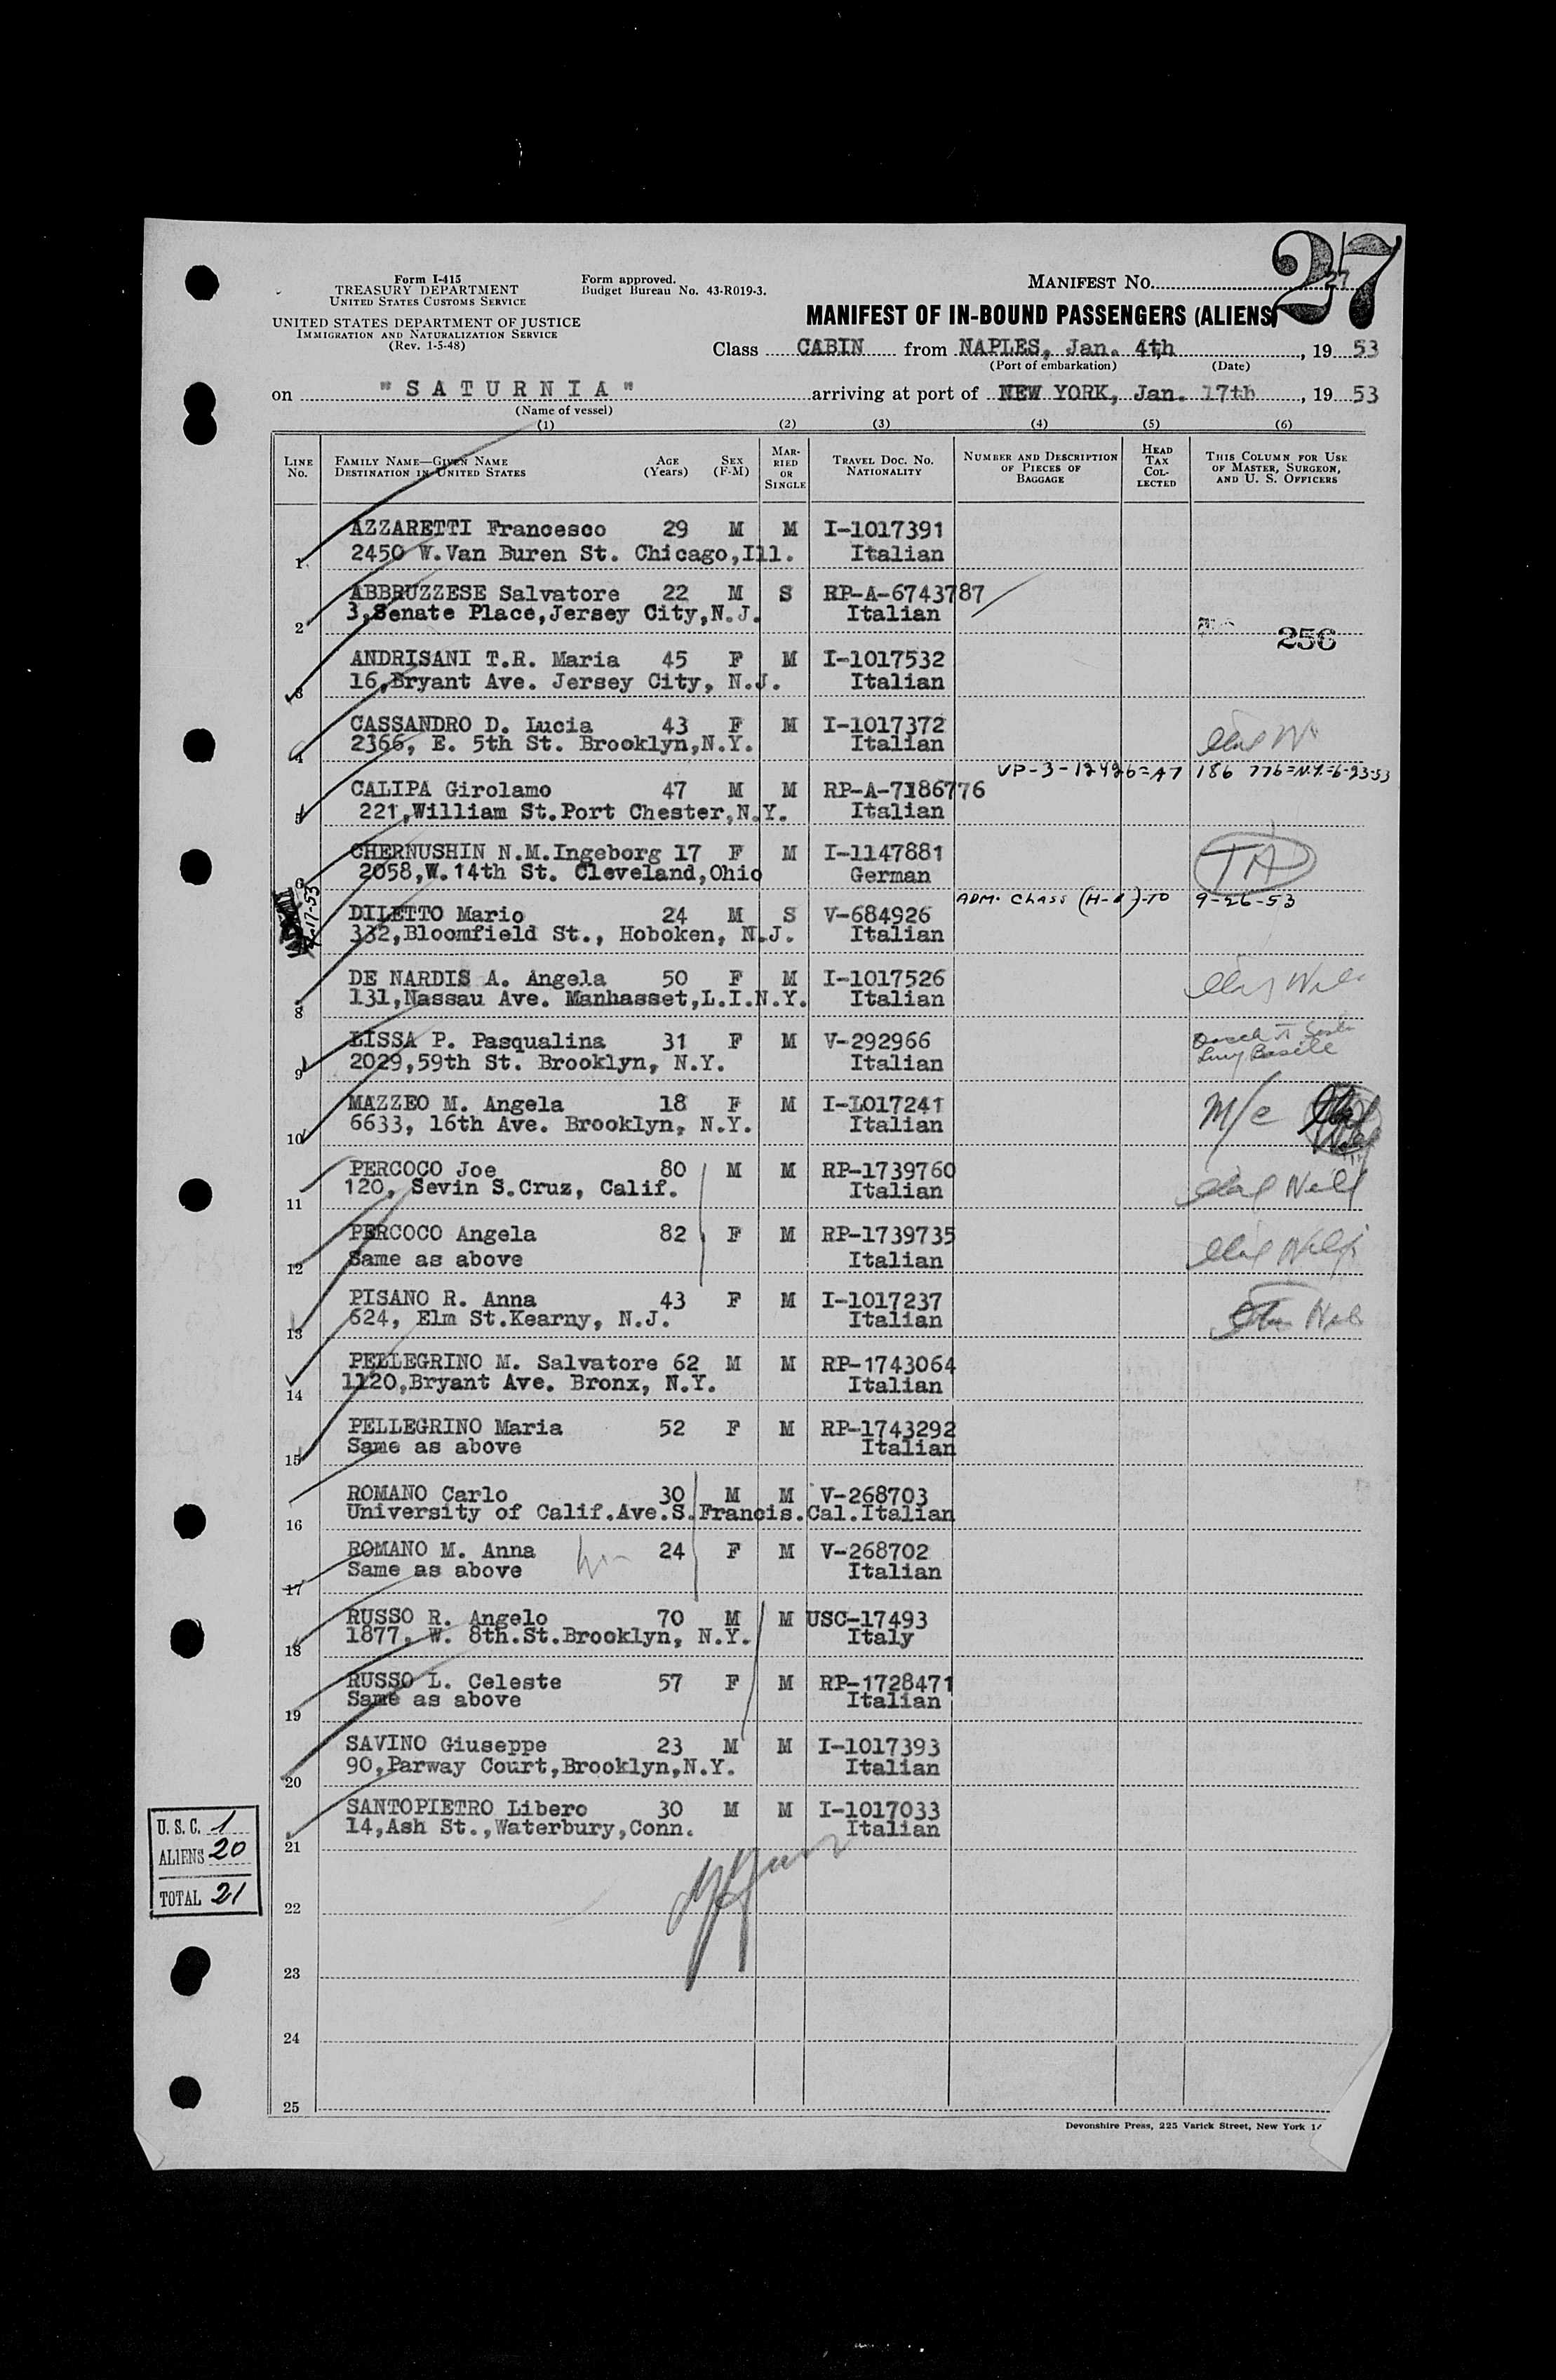 27
Form I-415
TREASURY DEPARTMENT
UNITED STATES CUSTOMS SERVICE
UNITED STATES DEPARTMENT OF JUSTICE
IMMIGRATION AND NATURALIZATION SERVICE
(Rev. 1-5-48)
Form approved.
Budget Bureau No. 43-R019-3.
MANIFEST NO. 27
MANIFEST OF IN-BOUND PASSENGERS (ALIENS)
Class CABIN from NAPLES, Jan. 4th, 19 53
(Port of embarkation) (Date)
on "SATURNIA" arriving at port of NEW YORK, Jan. 17th, 19 53
(Name of vessel)
(1) (2) (3) (4) (5) (6)
LINE No. FAMILY NAME—GIVEN NAME DESTINATION IN UNITED STATES AGE (Years) SEX (F-M) MARRIED OR SINGLE TRAVEL DOC. NO. NATIONALITY NUMBER AND DESCRIPTION OF PIECES OF BAGGAGE HEAD TAX COLLECTED THIS COLUMN FOR USE OF MASTER, SURGEON, AND U. S. OFFICERS
AZZARETTI Francesco 29 M M I-1017391
1 2450 W.Van Buren St. Chicago,Ill. Italian
ABBRUZZESE Salvatore 22 M S RP-A-6743787
2 3,Senate Place,Jersey City,N.J. Italian
256
ANDRISANI T.R. Maria 45 F M I-1017532
3 16,Bryant Ave. Jersey City, N.J. Italian
CASSANDRO D. Lucia 43 F M I-1017372
4 2366, E. 5th St. Brooklyn,N.Y. Italian
VP-3-12426=A7 186 776=N.Y.=6-23-53
CALIPA Girolamo 47 M M RP-A-7186776
5 221,William St.Port Chester,N.Y. Italian
CHERNUSHIN N.M.Ingeborg 17 F M I-1147881 TA
6 2058,W.14th St. Cleveland,Ohio German
ADM. CLASS (H-1)-TO 9-26-53
DILETTO Mario 24 M S V-684926
332,Bloomfield St., Hoboken, N.J. Italian
DE NARDIS A. Angela 50 F M I-1017526
8 131,Nassau Ave. Manhasset,L.I.N.Y. Italian
LISSA P. Pasqualina 31 F M V-292966
9 2029,59th St. Brooklyn, N.Y. Italian
MAZZEO M. Angela 18 F M I-1017241 M/c
10 6633, 16th Ave. Brooklyn, N.Y. Italian
PERCOCO Joe 80 M M RP-1739760
11 120, Sevin S.Cruz, Calif. Italian
PERCOCO Angela 82 F M RP-1739735
12 Same as above Italian
PISANO R. Anna 43 F M I-1017237
13 624, Elm St.Kearny, N.J. Italian
PELLEGRINO M. Salvatore 62 M M RP-1743064
14 1120,Bryant Ave. Bronx, N.Y. Italian
PELLEGRINO Maria 52 F M RP-1743292
15 Same as above Italian
ROMANO Carlo 30 M M V-268703
16 University of Calif.Ave.S.Francis.Cal.Italian
ROMANO M. Anna 24 F M V-268702
17 Same as above Italian
RUSSO R. Angelo 70 M M USC-17493
18 1877, W. 8th.St.Brooklyn, N.Y. Italy
RUSSO L. Celeste 57 F M RP-1728471
19 Same as above Italian
SAVINO Giuseppe 23 M M I-1017393
20 90,Parway Court,Brooklyn,N.Y. Italian
SANTOPIETRO Libero 30 M M I-1017033
21 14,Ash St.,Waterbury,Conn. Italian
U. S. C. 1
ALIENS 20
TOTAL 21
22
23
24
25
Devonshire Press, 225 Varick Street, New York